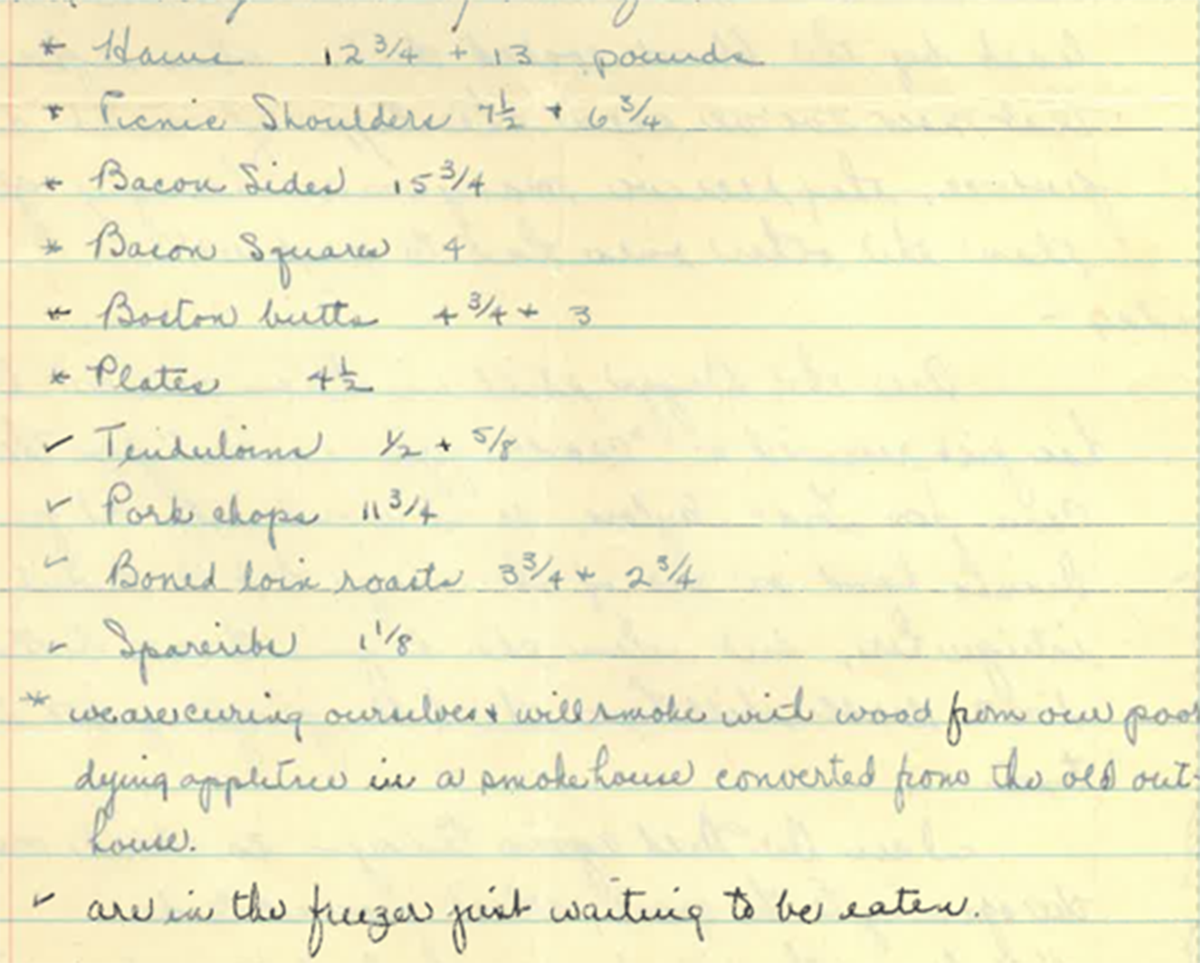 * Hams 12 3/4 + 13 pounds
* Picnic Shoulders 7 1/2 + 6 3/4
* Bacon Sides 15 3/4
* Bacon Squares 4
* Boston butts 4 3/4 + 3
* Plates 4 1/2
✓ Tenderloins 1/2 + 5/8
✓ Pork chops 11 3/4
✓ Boned loin roasts 3 3/4 + 2 3/4
✓ Spareribs 1 1/8
* we are curing ourselves + will smoke with wood from our poor
dying appletree in a smokehouse converted from the old out-
house.
✓ are in the freezer just waiting to be eaten.